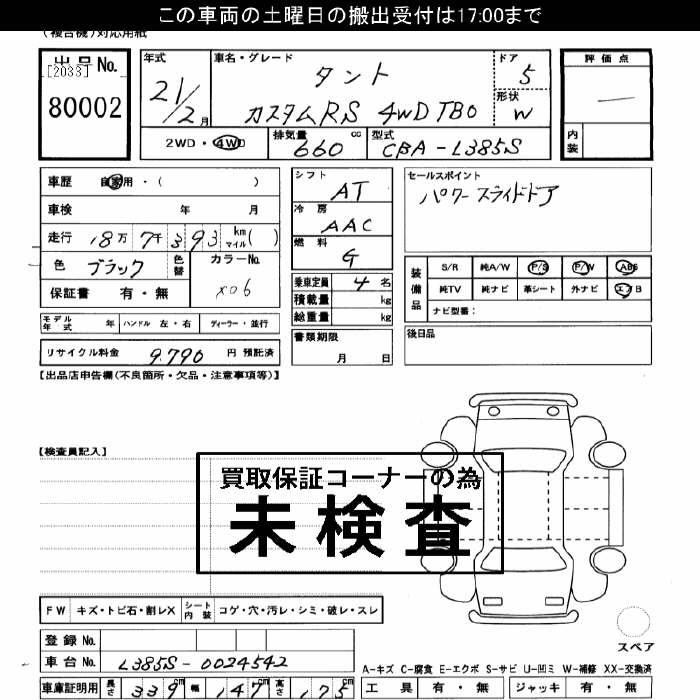 この車両の土曜日の搬出受付は17:00まで
(複合機)対応用紙
出品No.
[2033]
80002
年式
21/2月
車名・グレード
タント
カスタムRS 4WD TBO
ドア
5
形状
W
評価点
—
内装
2WD・4WD
排気量
660
cc
型式
CBA-L385S
車歴 自家用・( )
車検 年 月
走行 18万7千393 km マイル( )
色 ブラック
色替
カラーNo.
X06
保証書 有・無
シフト
AT
冷房
AAC
燃料
G
乗車定員 4名
積載量 kg
総重量 kg
セールスポイント
パワースライドドア
装備品
S/R 純A/W P/S P/W ABS
純TV 純ナビ 革シート 外ナビ エアB
ナビ型番:
モデル年式 年 ハンドル 左・右 ディーラー・並行
リサイクル料金 9,790 円 預託済
書類期限
月 日
後日品
【出品店申告欄(不良箇所・欠品・注意事項等)】
【検査員記入】
買取保証コーナーの為
未検査
FW キズ・トビ石・割レX
シート内装 コゲ・穴・汚レ・シミ・破レ・スレ
登録No.
車台No. L385S-0024542
車庫証明用 長さ 339cm 幅 147cm 高さ 175cm
スペア
A-キズ C-腐食 E-エクボ S-サビ U-凹ミ W-補修 XX-交換済
工具 有・無 ジャッキ 有・無